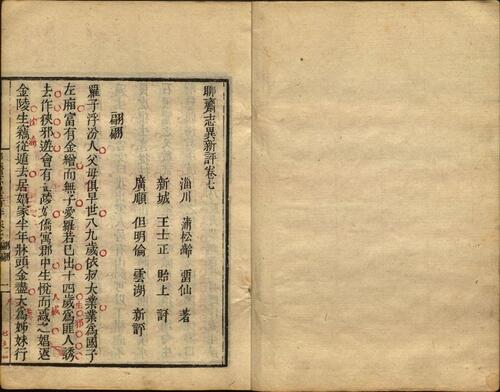 聊齋志異新評卷七
淄川 蒲松齡 畱仙 著
新城 王士正 貽上 評
廣順 但明倫 雲湖 新評
翩翩
羅子浮汾人父母俱早世八九歲依叔大業業爲國子
左廂富有金繒而無子愛羅若己出十四歲爲匪人誘
去作狹邪遊會有金陵娼僑寓郡中生悅而惑之娼返
金陵生竊從遁去居娼家半年牀頭金盡大爲姊妹行